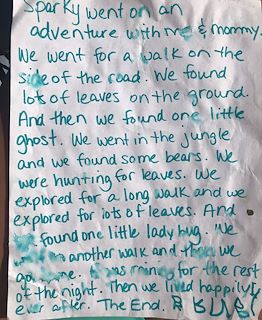 Sparky went on an
adventure with me & mommy.
We went for a walk on the
side of the road. We found
lots of leaves on the ground.
And then we found one little
ghost. We went in the jungle
and we found some bears. We
were hunting for leaves. We
explored for a long walk and we
explored for lots of leaves. And
found one little lady bug. We
another walk and then we
for the rest
of the night. Then we lived happily
ever after. The End.